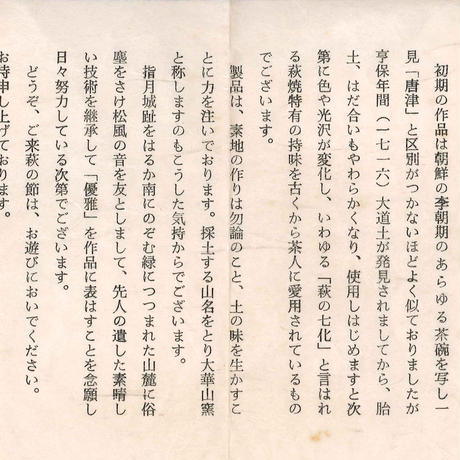 初期の作品は朝鮮の李朝期のあらゆる茶碗を写し一
見「唐津」と区別がつかないほどよく似ておりましたが
亨保年間(一七一六)大道土が発見されましてから、胎
土、はだ合いもやわらかくなり、使用しはじめますと次
第に色や光沢が変化し、いわゆる「萩の七化」と言はれ
る萩焼特有の持味を古くから茶人に愛用されているもの
でございます。
製品は、素地の作りは勿論のこと、土の味を生かすこ
とに力を注いでおります。採土する山名をとり大華山窯
と称しますのもこうした気持からでございます。
指月城趾をはるか南にのぞむ緑につつまれた山麓に俗
塵をさけ松風の音を友としまして、先人の遺した素晴し
い技術を継承して「優雅」を作品に表はすことを念願し
日々努力している次第でございます。
どうぞ、ご来萩の節は、お遊びにおいでください。
お待申し上げております。